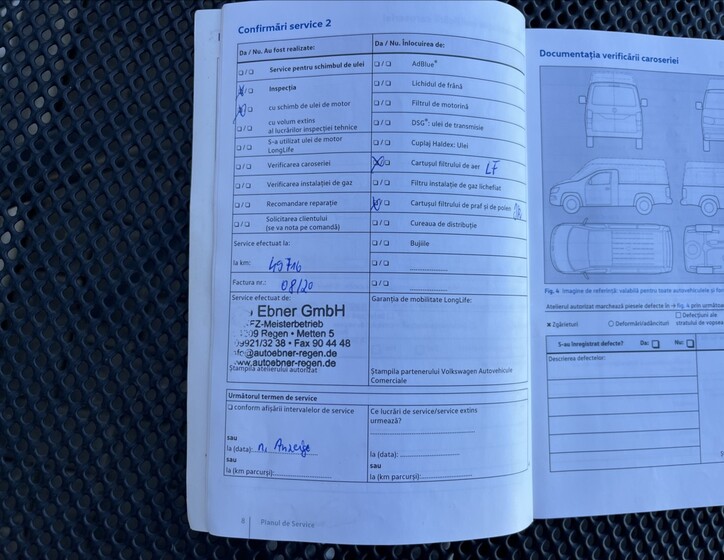 Confirmări service 2
Da / Nu. Au fost realizate:
Da / Nu. Înlocuirea de:
❏/❏ Service pentru schimbul de ulei
❏/❏ AdBlue®
/❏ Inspecția
❏/❏ Lichidul de frână
/❏ cu schimb de ulei de motor
❏/❏ Filtrul de motorină
❏/❏ cu volum extins
al lucrărilor inspecției tehnice
❏/❏ DSG®: ulei de transmisie
❏/❏ S-a utilizat ulei de motor
LongLife
❏/❏ Cuplaj Haldex: Ulei
❏/❏ Verificarea caroseriei
/❏ Cartușul filtrului de aer LF
❏/❏ Verificarea instalației de gaz
❏/❏ Filtru instalație de gaz lichefiat
❏/❏ Recomandare reparație
/❏ Cartușul filtrului de praf și de polen
❏/❏ Solicitarea clientului
(se va nota pe comandă)
❏/❏ Cureaua de distribuție
Service efectuat la:
❏/❏ Bujiile
la km: 49716
❏/❏
Factura nr.: 08/20
❏/❏
Service efectuat de:
Garanția de mobilitate LongLife:
Ebner GmbH
FZ-Meisterbetrieb
09 Regen • Metten 5
09921/32 38 • Fax 90 44 48
fo@autoebner-regen.de
www.autoebner-regen.de
Ștampila atelierului autorizat
Ștampila partenerului Volkswagen Autovehicule
Comerciale
Următorul termen de service
❏ conform afișării intervalelor de service
Ce lucrări de service/service extins
urmează?
sau
la (data): n. Anzeige
la (data):
sau
sau
la (km parcurși):
la (km parcurși):
8 Planul de Service
Documentația verificării caroseriei
Fig. 4 Imagine de referință: valabilă pentru toate autovehiculele și
Atelierul autorizat marchează piesele defecte în → fig. 4 prin
✖ Zgârieturi
○ Deformări/adâncituri
❏ Defecțiuni ale
stratului de
S-au înregistrat defecte? Da: ❏ Nu: ❏
Descrierea defectelor: